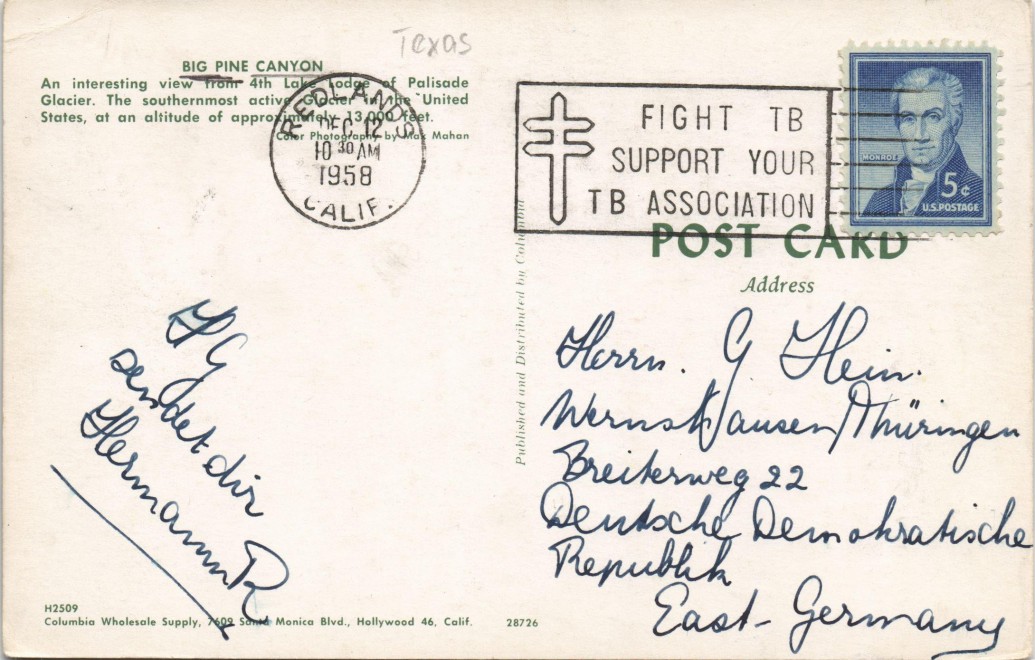 Texas
BIG PINE CANYON
An interesting view from 4th Lake Lodge of Palisade
Glacier. The southernmost active Glacier in the United
States, at an altitude of approximately 13,000 feet.
Color Photography by Max Mahan
REDLANDS
DEC 12
10 30 AM
1958
CALIF.
FIGHT TB
SUPPORT YOUR
TB ASSOCIATION
MONROE
5¢
U.S. POSTAGE
POST CARD
Address
Published and Distributed by Columbia
HG
sendet dir
Hermann R
Herrn. G Hein.
Wernshausen/Thüringen
Breiterweg 22
Deutsche Demokratische
Republik
East-Germany
H2509
Columbia Wholesale Supply, 7609 Santa Monica Blvd., Hollywood 46, Calif.
28726